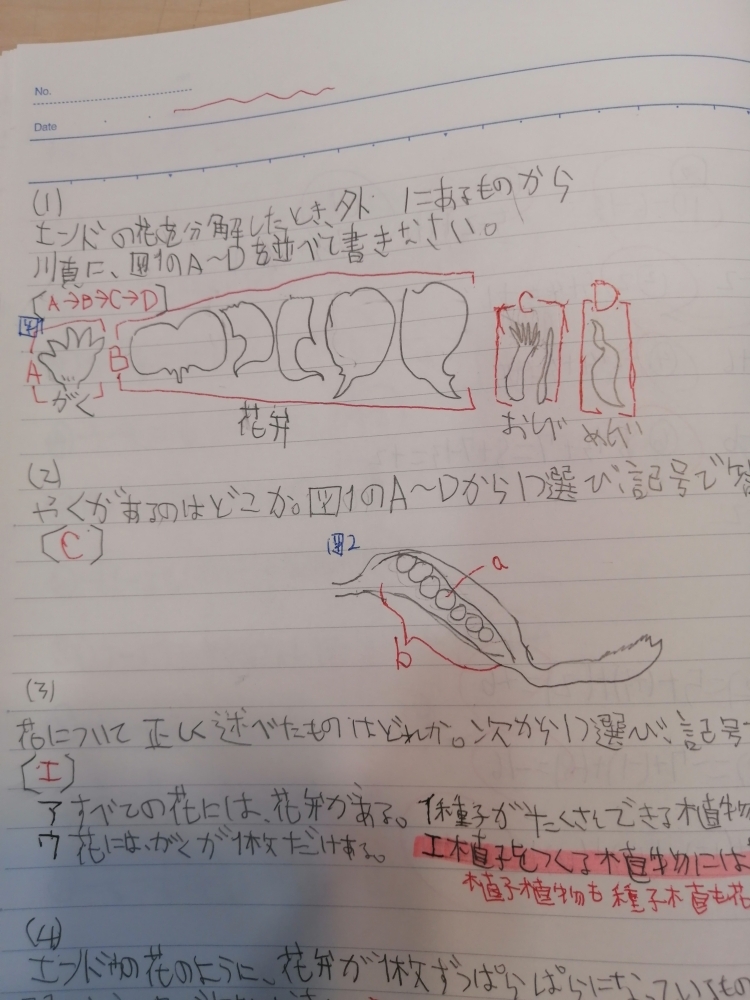 No.
Date
(1)
エンドの花を分解したとき、外 にあるものから
順に、図1のA~Dを並べて書きなさい。
[A→B→C→D]
図1
A
B
C
D
がく
花弁
おしべ
めしべ
(2)
やくがあるのはどこか。図1のA~Dから1つ選び、記号で
[C]
図2
a
b
(3)
花について正しく述べたものはどれか。次から1つ選び、記号
[エ]
ア すべての花には、花弁がある。 イ 種子がたくさんできる植物
ウ 花には、がくが1枚だけある。 エ 種子をつくる植物には
種子植物も種子
(4)
エンドウの花のように、花弁が1枚ずつぱらぱらになっているもの